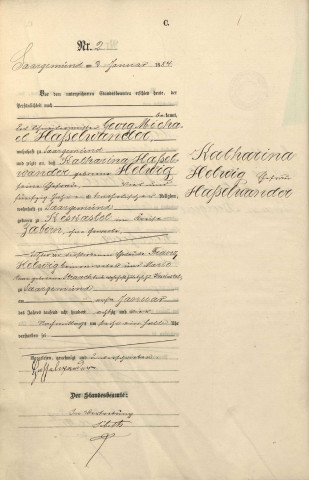 C.
Nr. 2
Saargemünd am 2. Januar 1884.
Vor dem unterzeichneten Standesbeamten erschien heute, der
Persönlichkeit nach
bekannt,
der Georg Micha-
el Haßelwander,
wohnhaft zu Saargemünd
und zeigte an, daß Katharina Haßel-
wander geborene Helwig
seine Ehefrau,
fünfzig Jahre alt, Religion,
wohnhaft zu Saargemünd
geboren zu Keskastel im Kreise
Zabern, ohne Gewerbe
Tochter Franz
Helwig und
zu Saargemünd
am ersten Januar
des Jahres tausend acht hundert achtzig und vier
Nachmittags um sechs ein halb Uhr
verstorben sei
Vorgelesen, genehmigt und unterschrieben
Haßelwander
Der Standesbeamte:
In Vertretung
Katharina
Helwig Ehefrau
Haßelwander